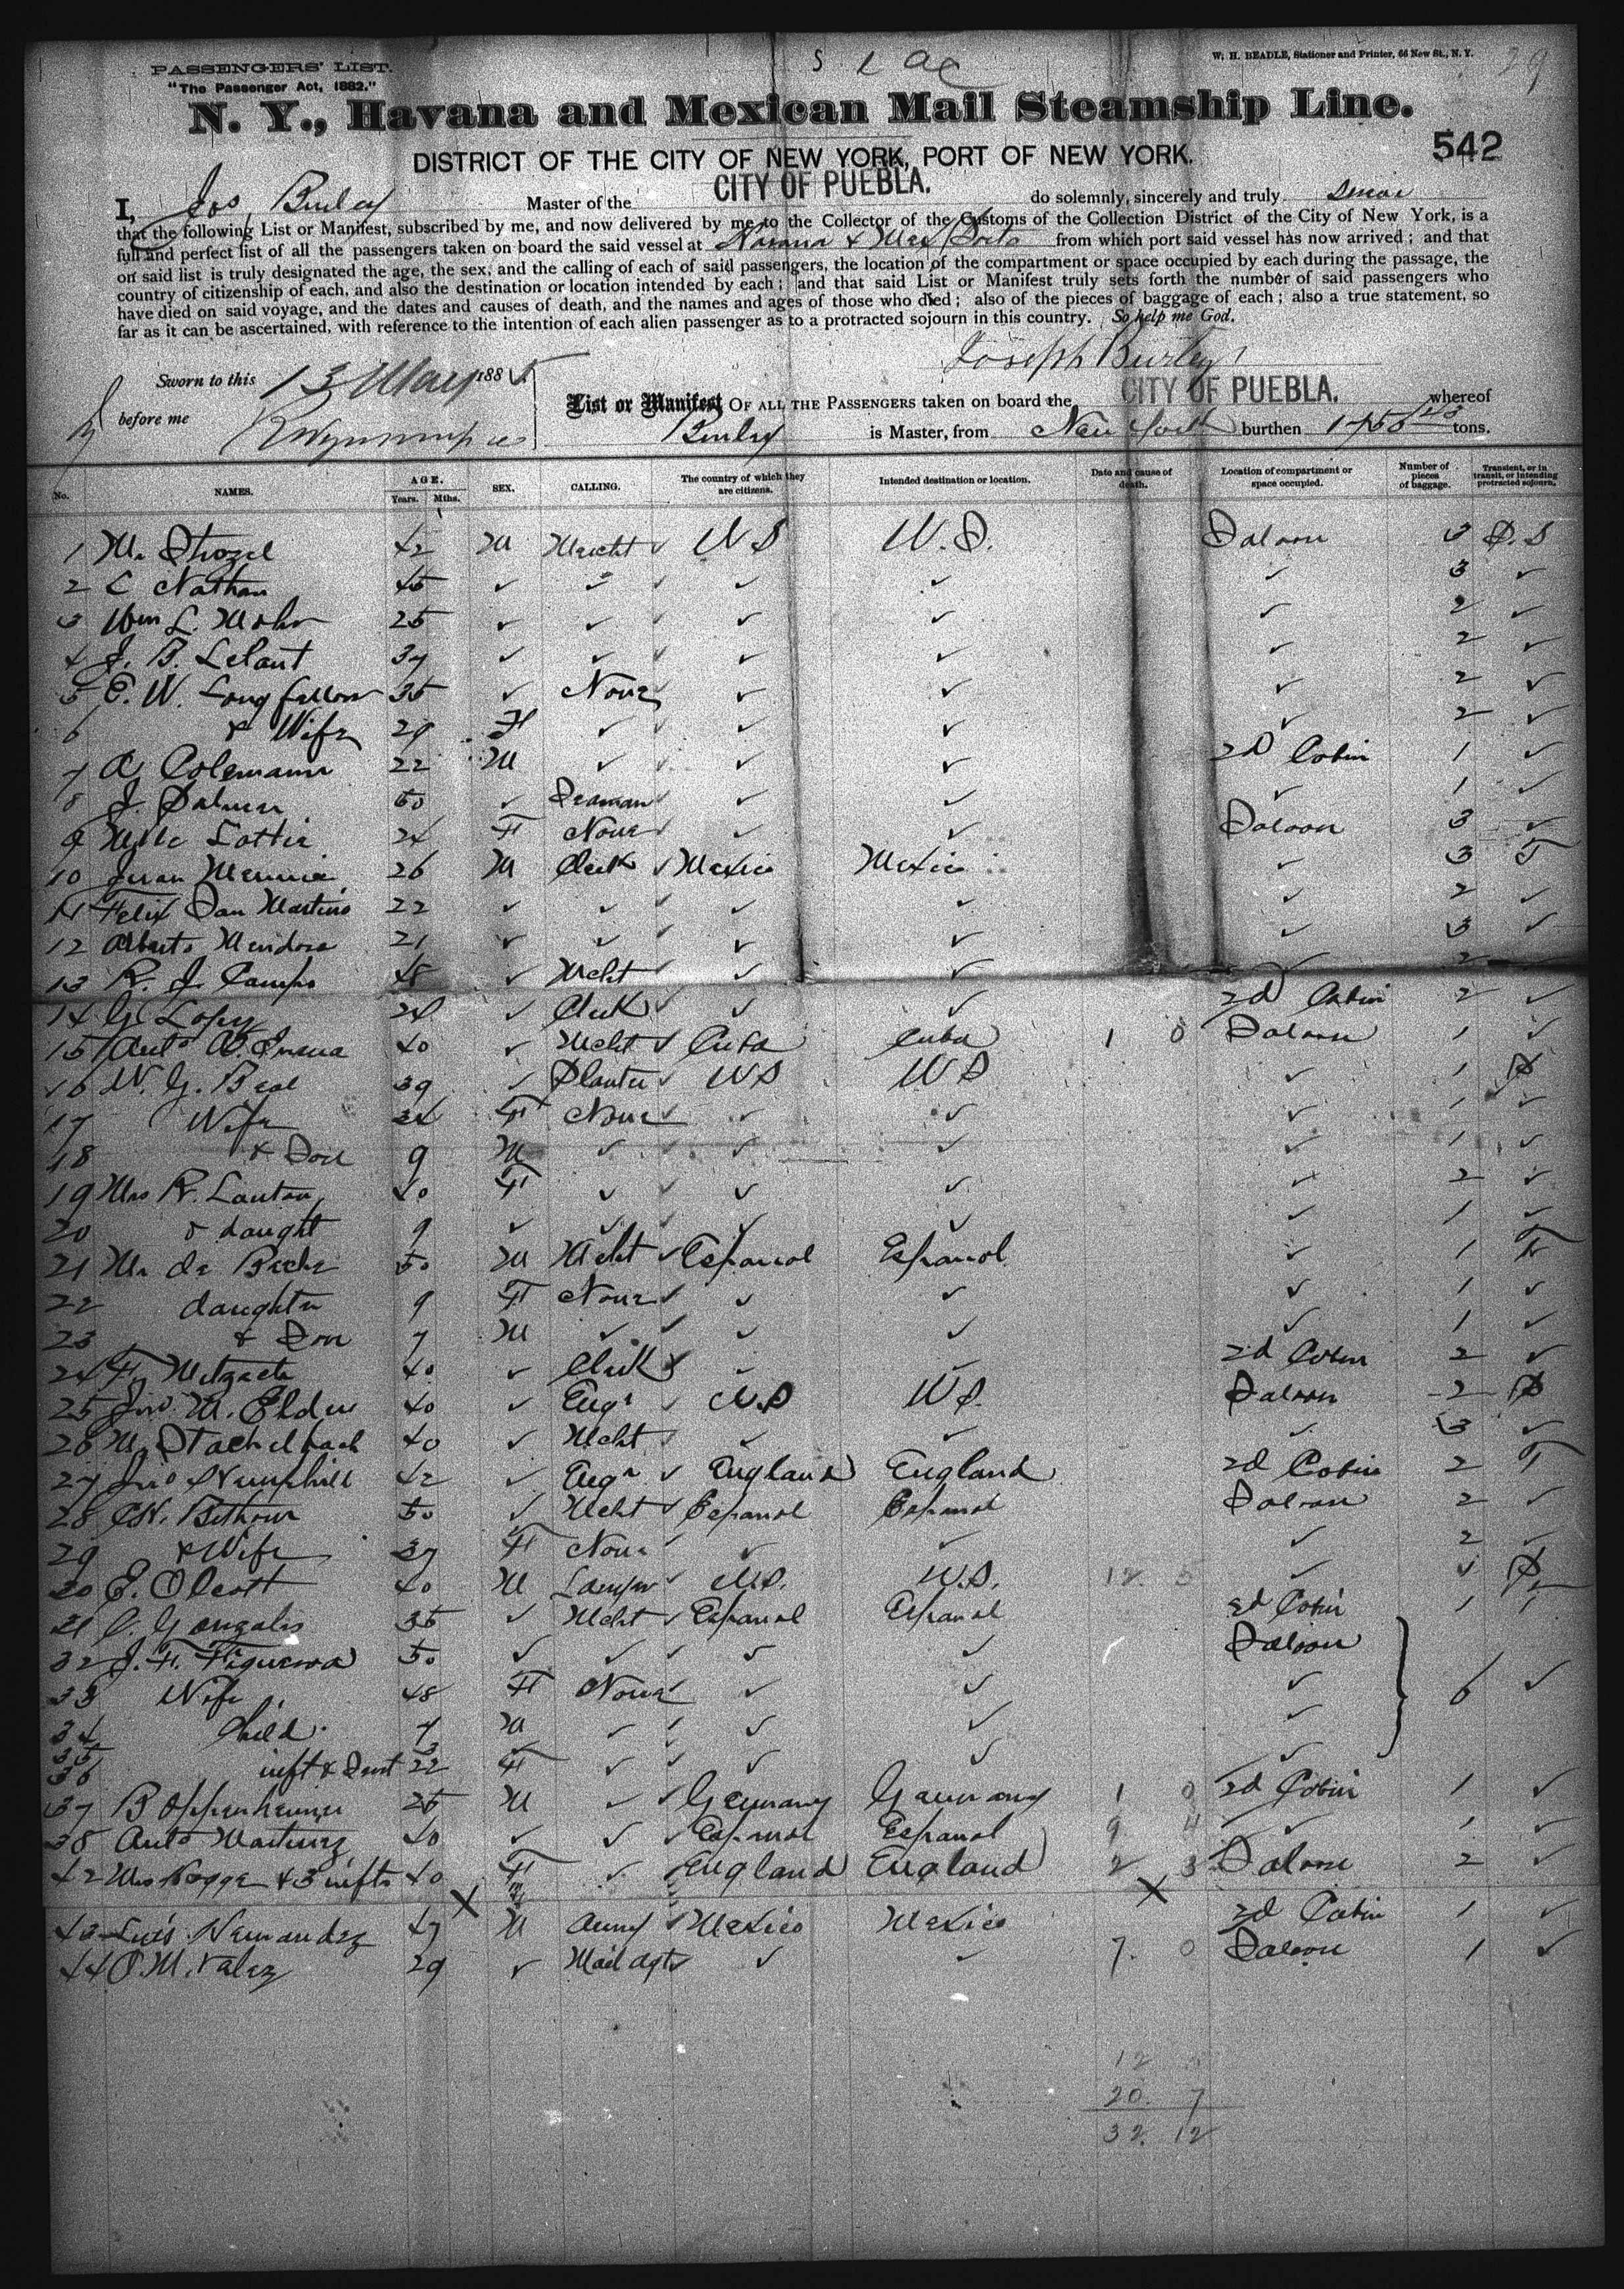 PASSENGERS' LIST.
"The Passenger Act, 1882."
W. H. BEADLE, Stationer and Printer, 66 New St., N. Y.
N. Y., Havana and Mexican Mail Steamship Line.
DISTRICT OF THE CITY OF NEW YORK, PORT OF NEW YORK.
542
I, Jos Burley Master of the CITY OF PUEBLA. do solemnly, sincerely and truly swear
that the following List or Manifest, subscribed by me, and now delivered by me to the Collector of the Customs of the Collection District of the City of New York, is a
full and perfect list of all the passengers taken on board the said vessel at Havana & Mex Ports from which port said vessel has now arrived; and that
on said list is truly designated the age, the sex, and the calling of each of said passengers, the location of the compartment or space occupied by each during the passage, the
country of citizenship of each, and also the destination or location intended by each; and that said List or Manifest truly sets forth the number of said passengers who
have died on said voyage, and the dates and causes of death, and the names and ages of those who died; also of the pieces of baggage of each; also a true statement, so
far as it can be ascertained, with reference to the intention of each alien passenger as to a protracted sojourn in this country. So help me God.
Joseph Burley
Sworn to this 13 May 1885
before me
List or Manifest OF ALL THE PASSENGERS taken on board the CITY OF PUEBLA. whereof
Burley is Master, from New York burthen tons.
No. NAMES. AGE. Years. Mths. SEX. CALLING. The country of which they are citizens. Intended destination or location. Date and cause of death. Location of compartment or space occupied. Number of pieces of baggage. Transient, or in transit, or intending protracted sojourn.
1 M. 42 M Mercht ✓ U S U. S. Saloon 3 P. S
2 C Nathan 45 ✓ ✓ ✓ ✓ ✓ ✓ 3 ✓
3 Wm L. Mohr 25 ✓ ✓ ✓ ✓ ✓ ✓ 2 ✓
4 J. B. 37 ✓ ✓ ✓ ✓ ✓ ✓ 2 ✓
5 E. W. Longfellow 35 ✓ None ✓ ✓ ✓ 2 ✓
6 & Wife 29 F ✓ ✓ ✓ ✓ ✓ 2 ✓
7 A Colemann 22 M ✓ ✓ ✓ ✓ 2d Cabin 1 ✓
8 J. Palmer 50 ✓ Seaman ✓ ✓ ✓ 1 ✓
9 Mlle Lottie 24 F None ✓ ✓ Saloon 3 ✓
10 Juan 26 M Clerk ✓ Mexico Mexico ✓ 3 T
11 Felix San Martino 22 ✓ ✓ ✓ ✓ ✓ 2 ✓
12 Alberto Mendoza 21 ✓ ✓ ✓ ✓ ✓ 3 ✓
13 R. J. Campo 48 ✓ Mcht ✓ ✓ ✓ ✓ 2
14 G. Lopez 24 ✓ Clerk ✓ ✓ ✓ 2d Cabin 2 ✓
15 Anto 40 ✓ Mcht ✓ Cuba Cuba 1 0 Saloon 1 ✓
16 W. G. Beal 39 ✓ Planter ✓ U S U S ✓ 1 P
17 Wife 34 F None ✓ ✓ ✓ ✓ 1 ✓
18 & Son 9 M ✓ ✓ ✓ ✓ 1 ✓
19 Mrs R. Lanton 40 F ✓ ✓ ✓ ✓ 2 ✓
20 & daught 9 ✓ ✓ ✓ ✓ ✓ 1 ✓
21 M. de Beche 50 M Mcht ✓ Espanol Espanol ✓ 1 T
22 daughter 9 F None ✓ ✓ ✓ ✓ 1 ✓
23 & Son 7 M ✓ ✓ ✓ ✓ ✓ 1 ✓
24 F. 40 ✓ Clerk ✓ ✓ ✓ 2d Cabin 2 ✓
25 Jno. M. Elder 40 ✓ Engr ✓ U.S U S. Saloon 2 P
26 M. Stachelbach 40 ✓ Mcht ✓ ✓ ✓ ✓ 3 ✓
27 Jno Hemphill 42 ✓ Engr ✓ England England 2d Cabin 2 T
28 50 ✓ Mcht ✓ Espanol Espanol Saloon 2 ✓
29 & Wife 37 F None ✓ ✓ ✓ 2 ✓
30 E. Olcott 40 M Lawyer ✓ U.S. U.S. 12. 5 ✓ P
31 C. Gonzales 35 ✓ Mcht ✓ Espanol Espanol 2d Cabin 1
32 J. F. Figueroa 50 ✓ ✓ ✓ ✓ ✓ Saloon
33 Wife 48 F None ✓ ✓ ✓ ✓ 6 ✓
34 Child 7 M ✓ ✓ ✓ ✓ ✓
35
36 inft & Servt 22 F ✓ ✓ ✓ ✓ ✓
37 B Oppenheimer 25 M ✓ ✓ Germany Germany 1 0 2d Cabin 1 ✓
38 Anto Martinez 40 ✓ ✓ ✓ Espanol Espanol 9 4 ✓ 1 ✓
42 Mrs & 3 infts 40 F ✓ England England 2 3 Saloon 2 ✓
43 Luis Hernandez 47 M Army ✓ Mexico Mexico 2d Cabin 1 ✓
44 O. M. Valez 29 ✓ Mail Agt ✓ ✓ ✓ 7. 0 Saloon 1 ✓
12
20. 7
32. 12